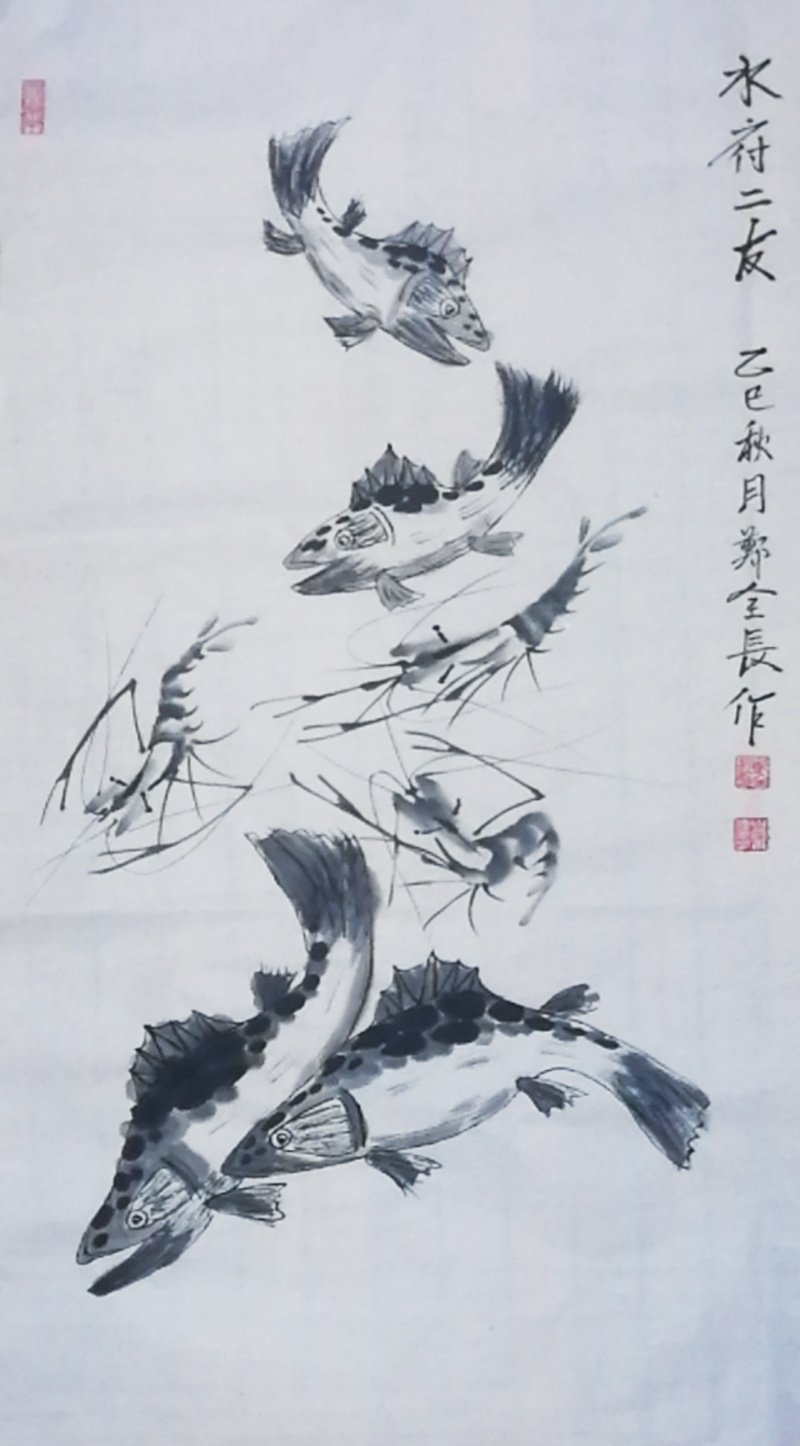 水府二友
乙巳秋月鄭全長作